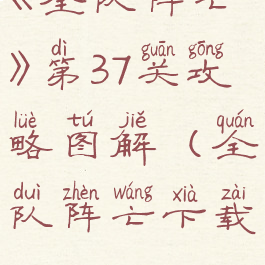 》第37关攻
dì guān gōng
略图解（全
lüè tú jiě quán
队阵亡下载
duì zhèn wáng xià zài